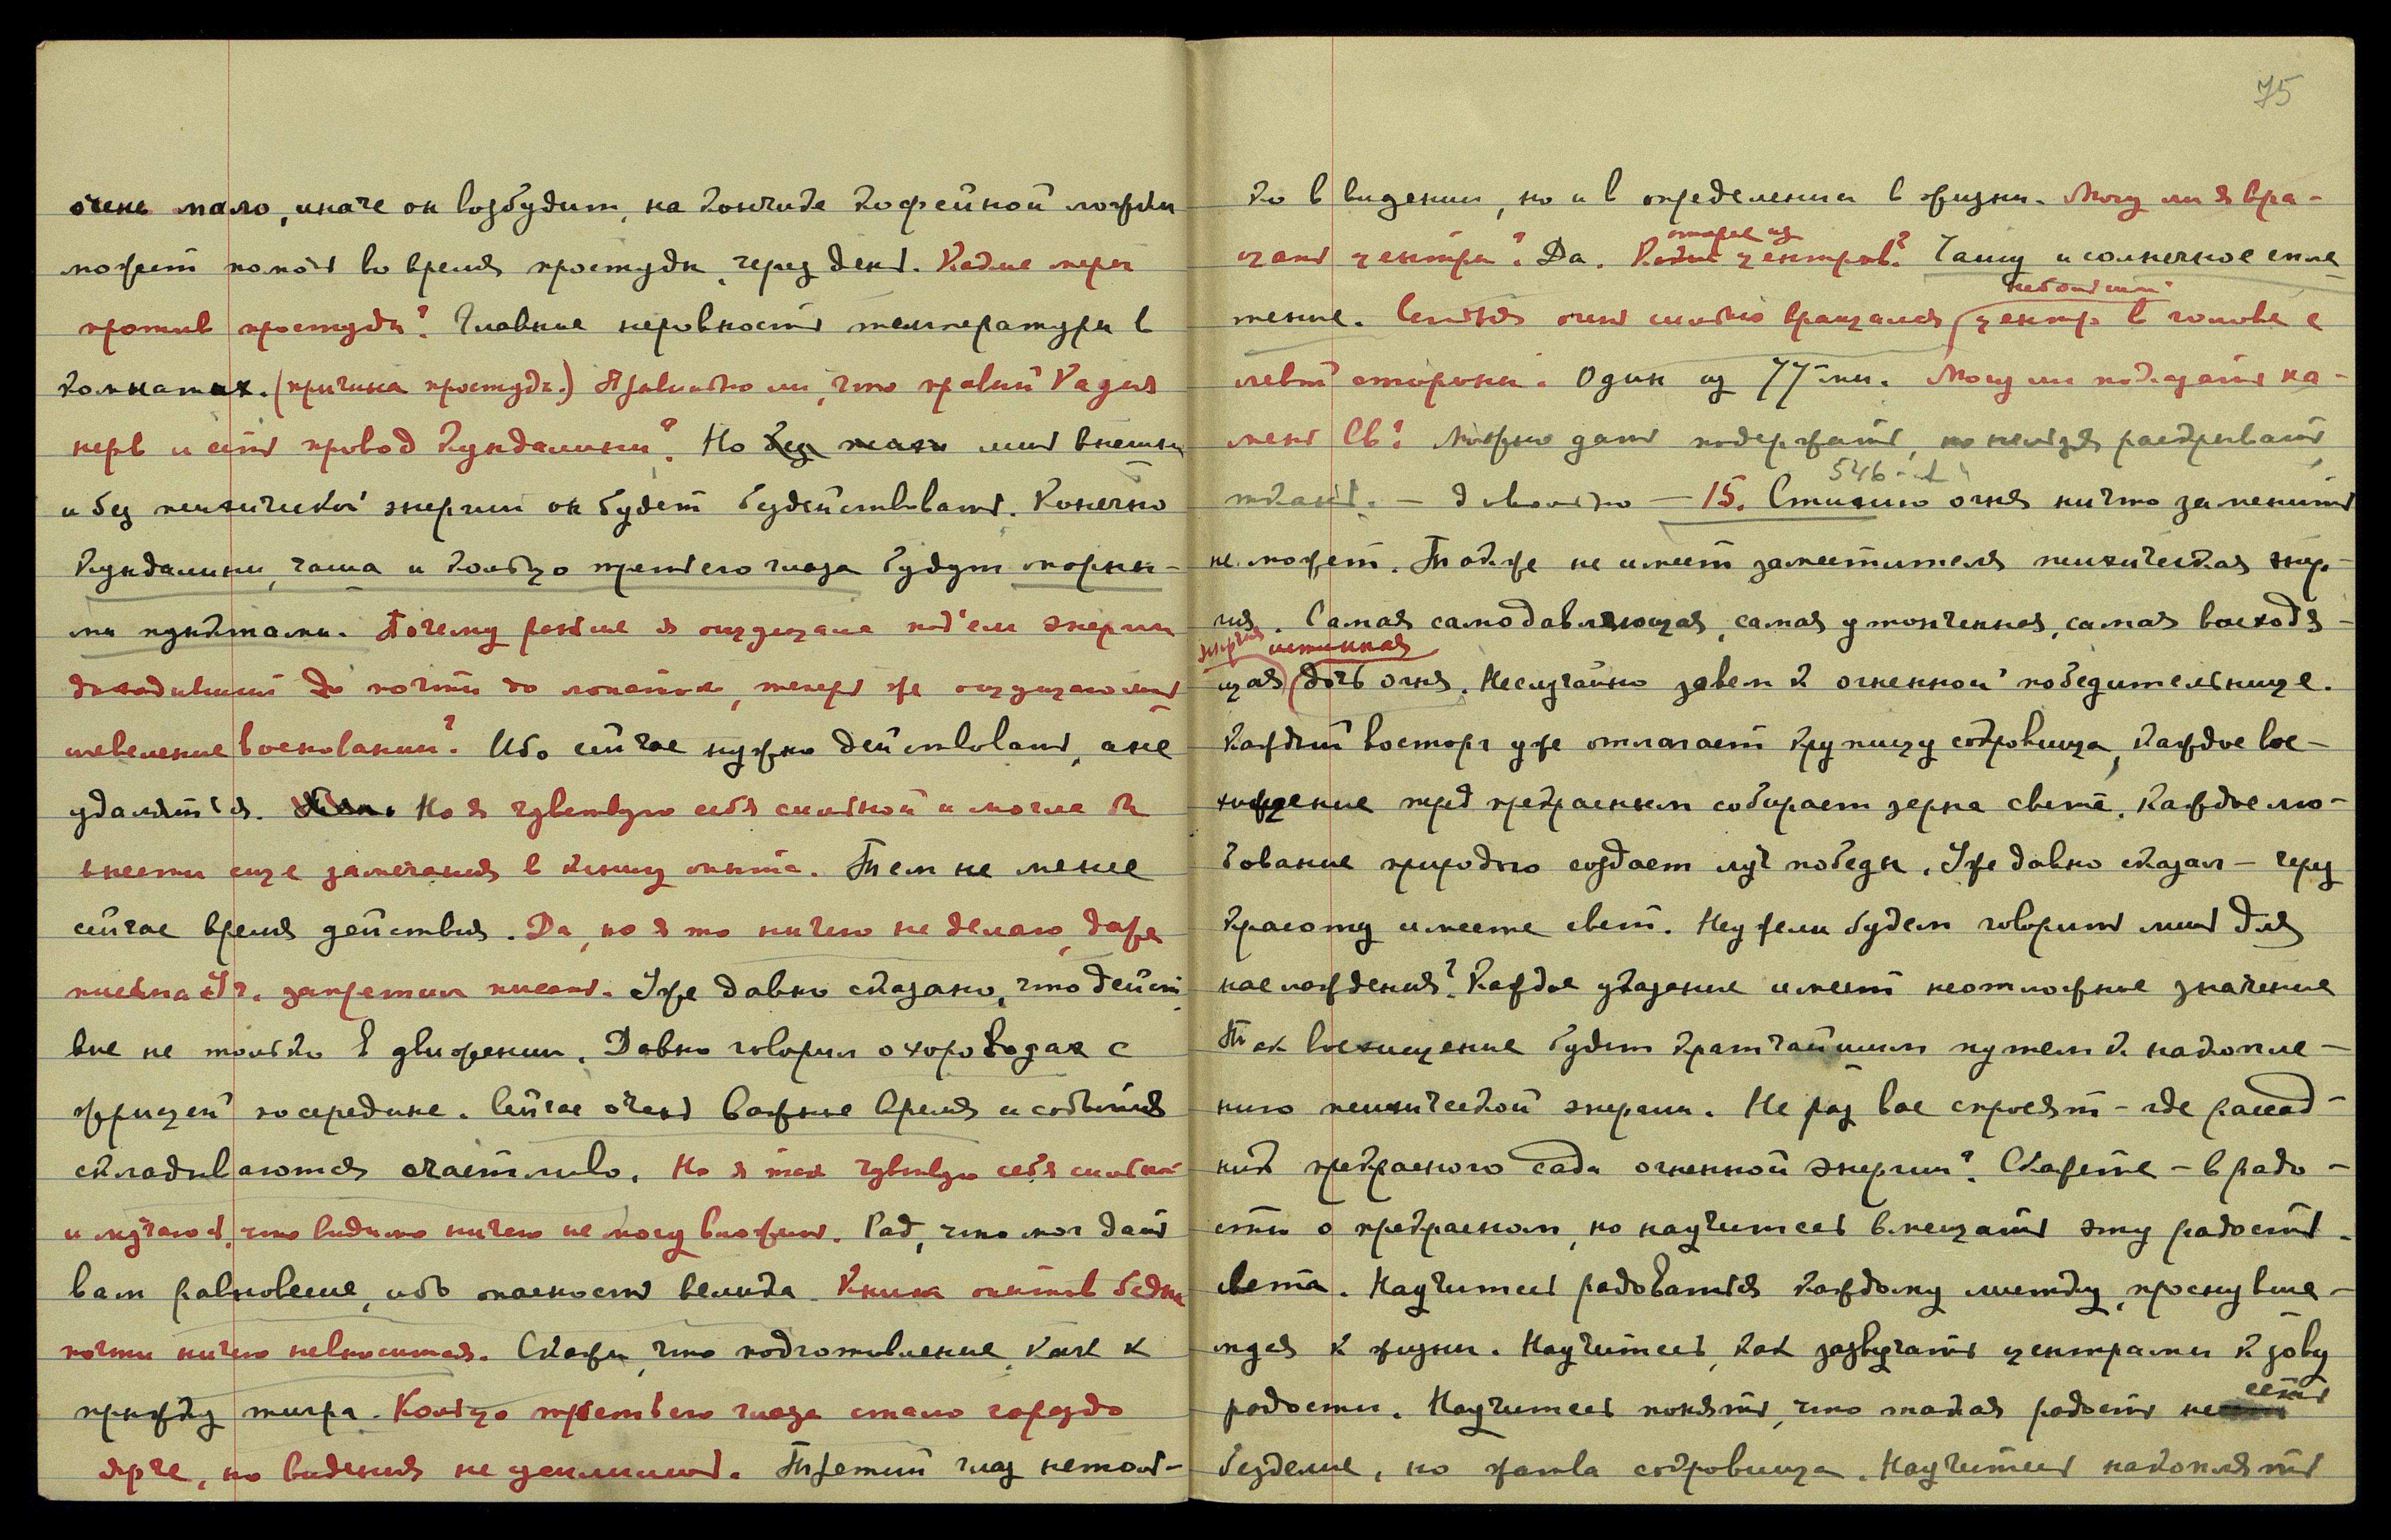 очень мало, иначе он возбудит, на кончике кофейной ложки
может помочь во время простуды, через день. Какие меры
против простуды? Главные неровность температуры в
комнатах. (причина простуды.) Правильно ли, что правый Vagus
нерв и есть провод Кундалини? Но без лишь внешн
и без психической энергии он будет бездействовать. Конечно
Кундалини, чаша и кольцо третьего глаза будут опорны-
ми пунктами. Почему раньше я ощущала под'ем энергии
доходивший до почти до лопаток, теперь же ощущаю лишь
шевеление в основании? Ибо сейчас нужно действовать, а не
удаляться. Но я чувствую себя сильной и могла бы
внести еще замечания в книгу опыта. Тем не менее
сейчас время действия. Да, но я то ничего не делаю, даже
письма Уч. запретил писать. Уже давно сказано, что дейст
вие не только в движении. Давно говорил о хороводах с
жрицей посередине. Сейчас очень важное время и события
складываются счастливо. Но я так чувствую себя сильной
и мучаюсь, что видимо ничего не могу вложить. Рад, что мог дать
вам равновесие, ибо опасность велика. Книга опытов бедна
почти ничего не вносится. Скажи, что подготовление как к
прыжку тигра. Кольцо третьего глаза стало гораздо
ярче, но видения не усилились. Третий глаз не толь-
75
ко в видении, но и в определении в жизни. Могу ли я вра-
щать центры? Да. Какие центров? Чашу и солнечное спле
тение. очень сильно вращался центр в голове с
небольшой
левой стороны. Один из 77-ми. Могу ли показать ка-
мень Св? Можно дать подержать, но нельзя раскрывать
ткань. — довольно — 15. Стихию огня ничто заменить
546-
не может. Также не имеет заместителя психическая энер-
гия. Самая самодавлеющая, самая утонченная, самая восходя-
энергия истинная
щая дочь огня. Неслучайно зовем к огненной победительнице.
Каждый восторг уже отлагает крупицу сокровища, каждое вос-
хищение перед прекрасным собирает зерна света. Каждое лю-
бование природою создает луч победы. Уже давно сказал — через
красоту имеете свет. Неужели будем говорить лишь для
наслаждения? Каждое указание имеет неотложное значение
Так восхищение будет кратчайшим путем к накопле-
нию психической энергии. Не раз вас спросят — где рассад-
ник прекрасного сада огненной энергии? Скажете — в радо-
сти о прекрасном, но научитесь вмещать эту радость
света. Научитесь радоваться каждому листку, проснувше-
муся к жизни. Научитесь, как зазвучать центрами к зову
радости. Научитесь понять, что такая радость не есть
безделие, но жатва сокровища. Научитесь накоплять